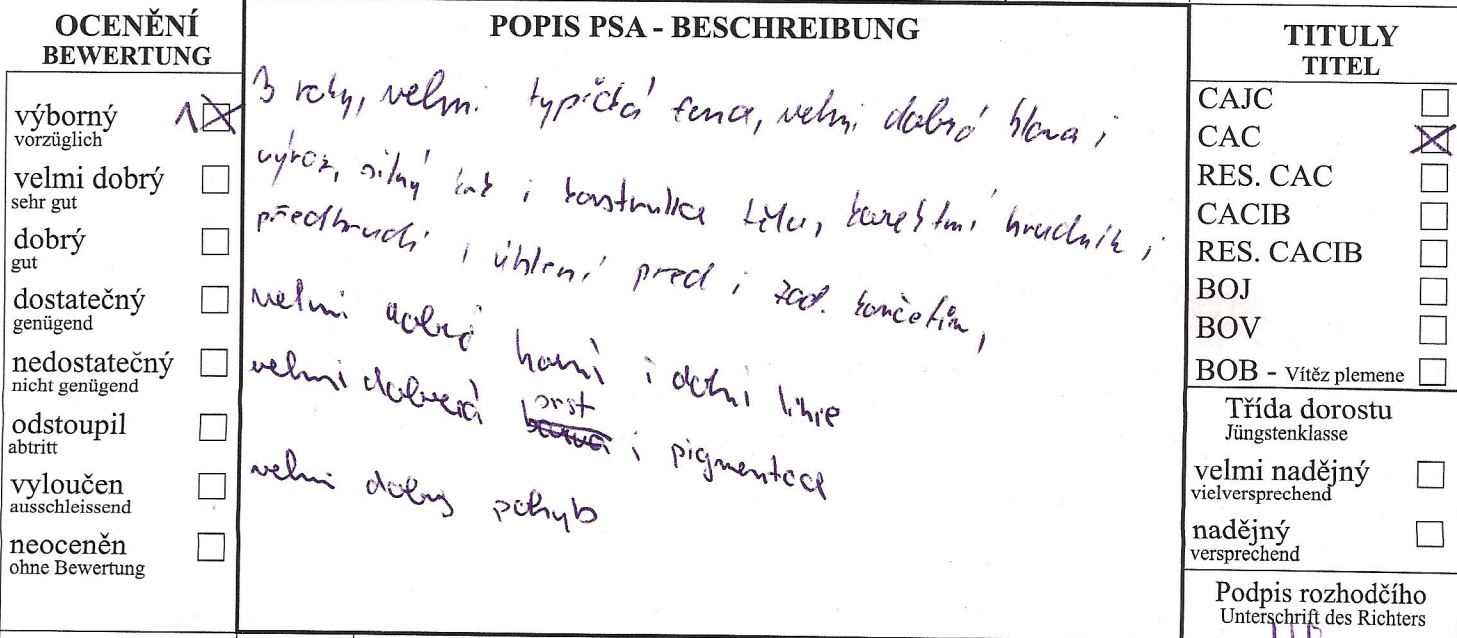 OCENĚNÍ
BEWERTUNG
výborný 1
vorzüglich
velmi dobrý
sehr gut
dobrý
gut
dostatečný
genügend
nedostatečný
nicht genügend
odstoupil
abtritt
vyloučen
ausschleissend
neoceněn
ohne Bewertung
POPIS PSA - BESCHREIBUNG
3 roky, velmi typická fena, velmi dobrá hlava i
výraz, silný krk i konstrukce těla, korektní hrudník i
předhrudí i úhlení před i zad. končetin,
velmi dobrá horní i dolní linie
velmi dobrá srst i pigmentace
velmi dobrý pohyb
TITULY
TITEL
CAJC
CAC
RES. CAC
CACIB
RES. CACIB
BOJ
BOV
BOB - Vítěz plemene
Třída dorostu
Jüngstenklasse
velmi nadějný
vielversprechend
nadějný
versprechend
Podpis rozhodčího
Unterschrift des Richters